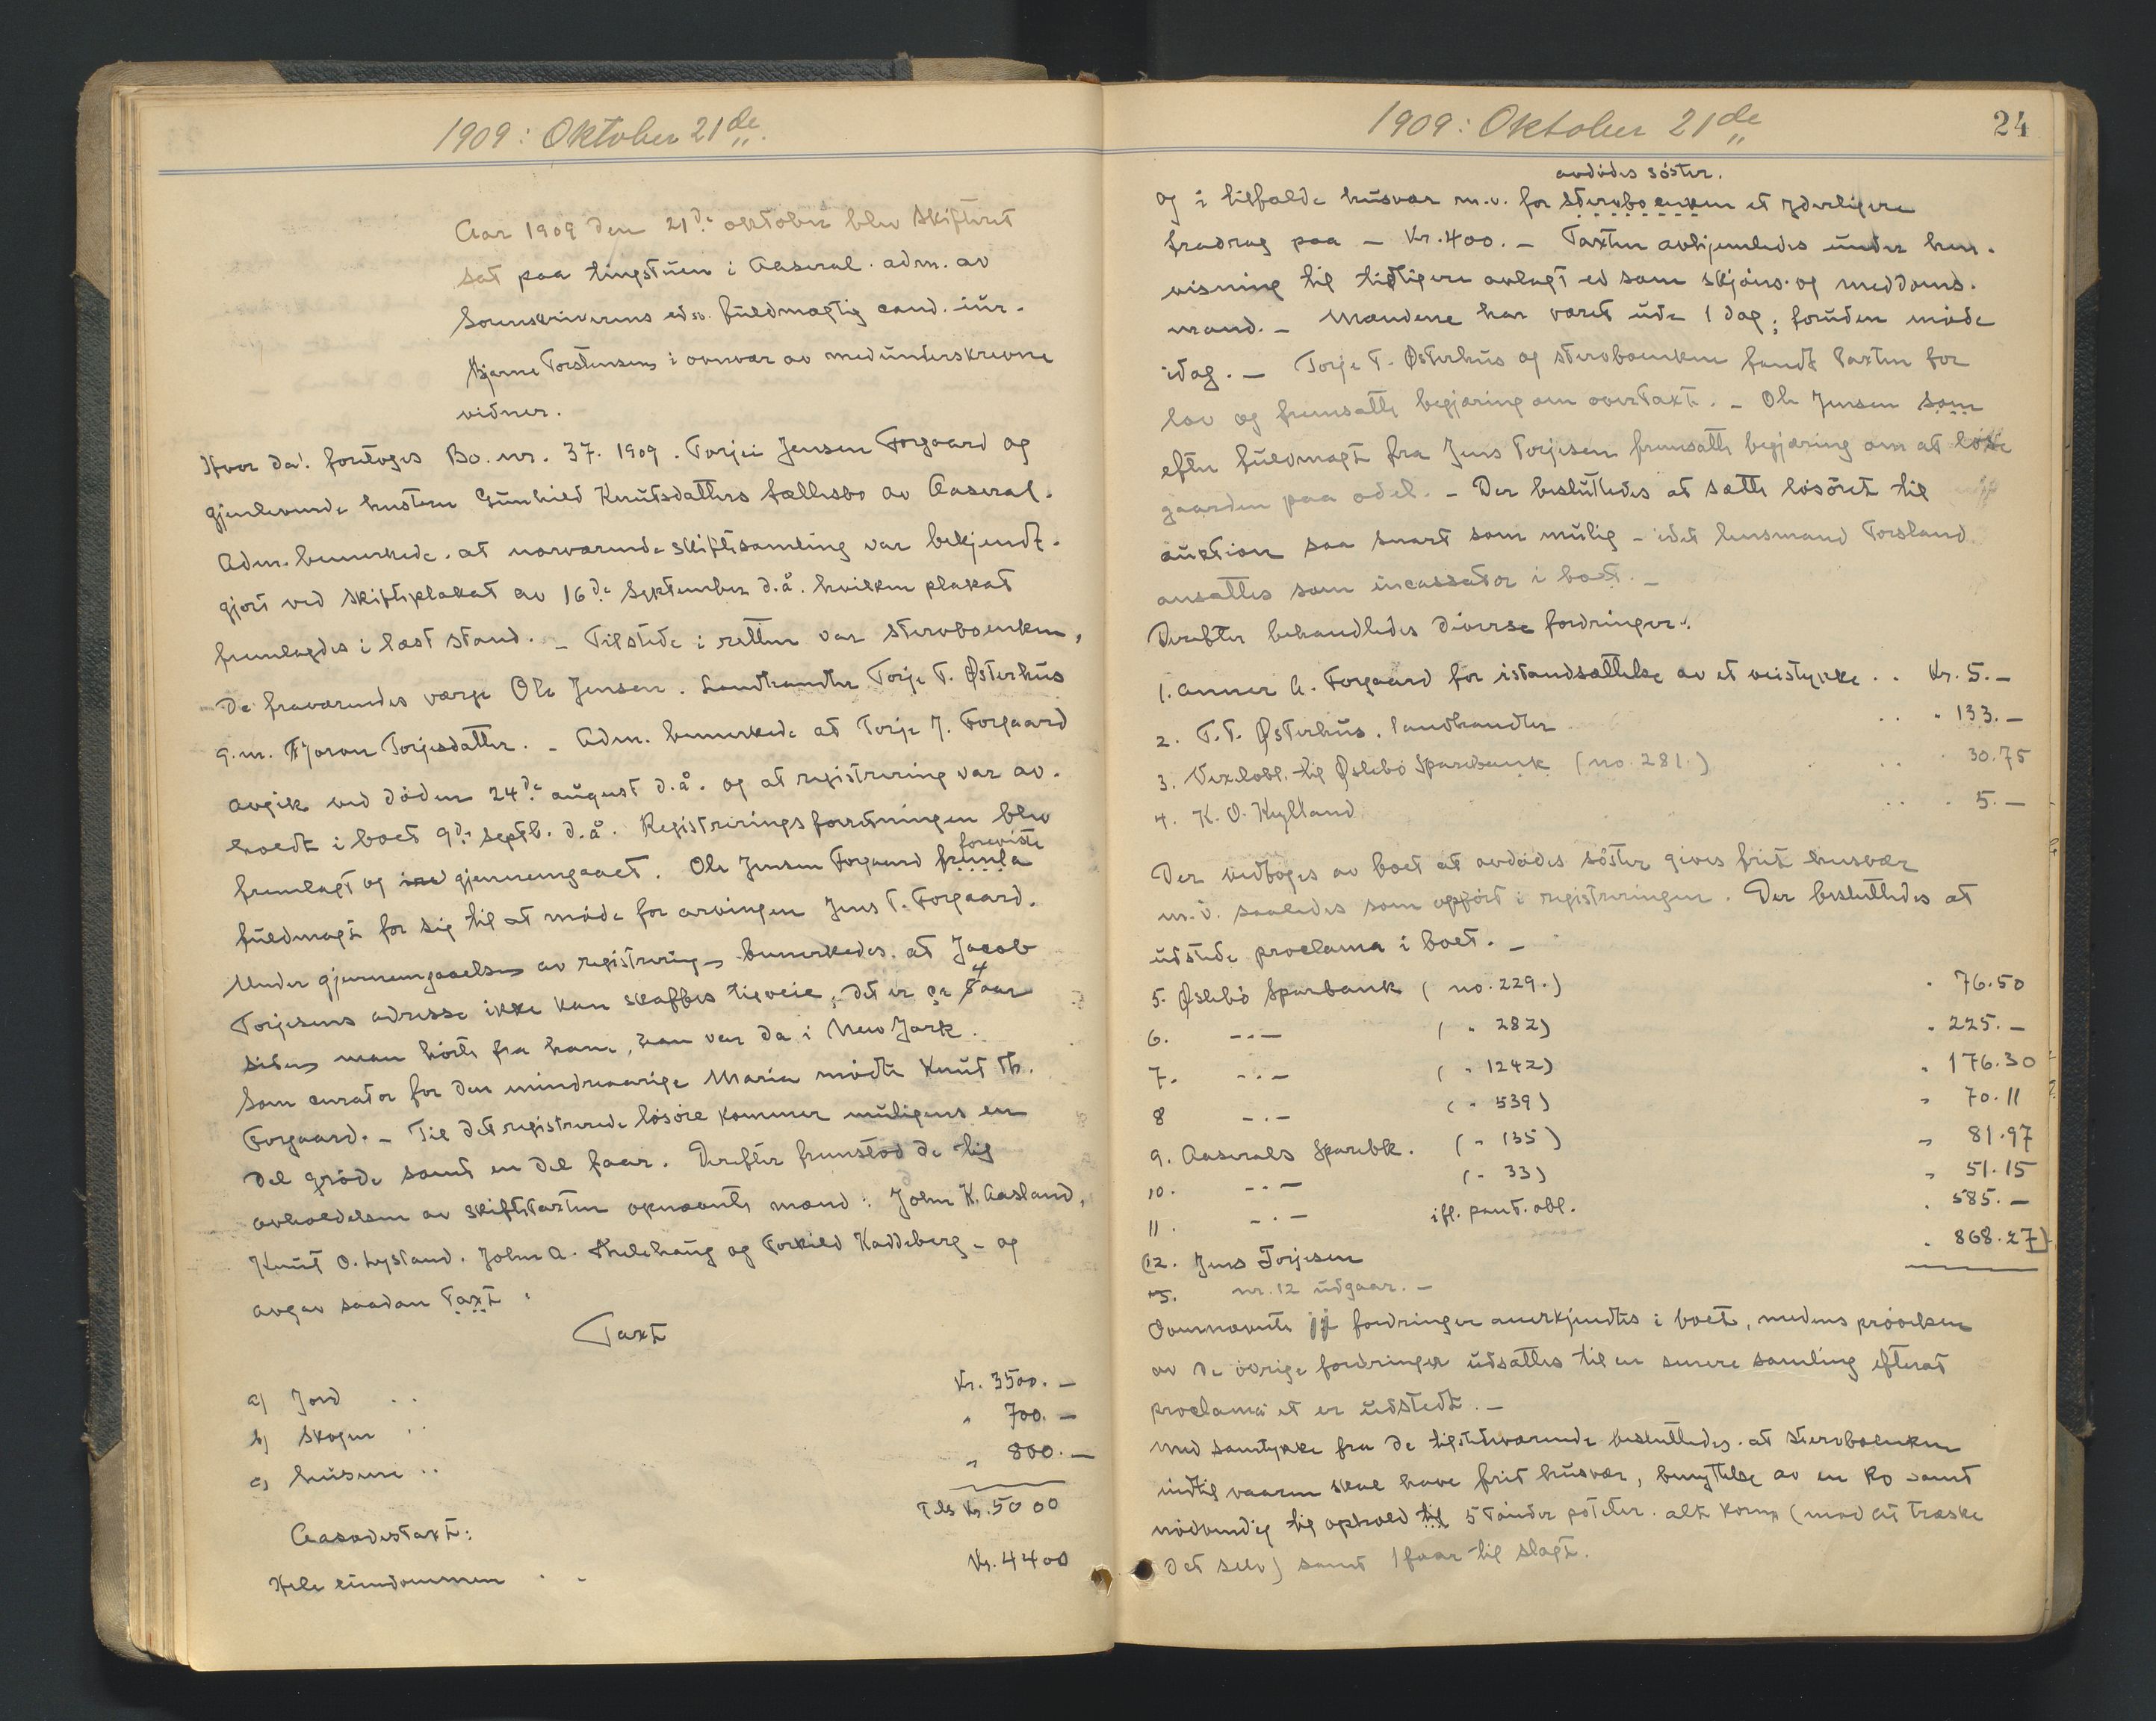 1909: Oktober 21de
Aar 1909 den 21de oktober blev skifteret
sat paa tingstuen i Aaseral. adm. av
Sorenskriverens edsv. fuldmægtig cand. jur.
Bjarne Torstensen i overvær av medunderskrevne
vidner.
Hvor da: foretoges Bo. nr. 37. 1909. Torjei Jensen Forgaard og
gjenlevende hustru Gunhild Knutsdatters fællesbo av Aaseral.
Adm. bemerkede. at nærværende skiftesamling var bekjendt-
gjort ved skifteplakat av 16de September d.å. hvilken plakat
fremlagdes i læst stand. – Tilstede i retten var stervboenken,
De fraværendes værge Ole Jensen. Landhandler Torje T. Østerhus
g.m. Joron Torjesdatter. – Adm. bemerkede at Torje J. Forgaard
avgik ved döden 24de august d.å. og at registrering var av-
holdt i boet 9de septb. d.å. Registreringsforretningen blev
foreviste
fremlagt og gjennemgaaet. Ole Jensen Forgaard fremla
fuldmagt for sig til at möde for arvingen Jens T. Forgaard.
Under gjennemgaaelsen av registrering bemerkedes. at Jacob
4
Torjesens adresse ikke kan skaffes tilveie, det er ca 5 aar
siden man hörte fra ham, han var da i New York.
Som curator for den mindreaarige Maria mödte Knut Th.
Forgaard. – Til det registrerede lösöre kommer muligens en
del gröde samt en del faar. Derefter fremstod de til
avholdelsen av skiftetaxten opnævnte mænd: John K. Aasland,
Knut O. Lystand. John A. Thelehaug og Torkild Kaddeberg – og
avgav saadan Taxt:
Taxt
a) Jord . . Kr. 3500. –
b) Skogen . . " 700. –
c) husene . . " 800. –
Tils Kr. 5000
Aasædestaxt:
Hele eiendommen . . Kr. 4400
1909: Oktober 21de
24
avdödes söster.
og i tilfælde husvær m.v. for stervboenken et yderligere
fradrag paa – Kr. 400. – Taxten avhjemledes under hen-
visning til tidligere avlagt ed som skjöns- og meddoms-
mænd. – Mændene har været ude 1 dag; foruden möde
idag. – Torje T. Østerhus og stervboenken fandt taxten for
lav og fremsatte begjæring om overtaxt. – Ole Jensen som
efter fuldmagt fra Jens Torjesen fremsatte begjæring om at löse
gaarden paa odel. – Der besluttedes at sætte lösöret til
auktion saa snart som mulig – idet lensmand Torsland
ansattes som incassator i boet. –
Derefter behandledes diverse fordringer:
1. Anner A. Forgaard for istandsættelse av et veistykke . . Kr. 5. –
2. T.T. Østerhus. landhandler . . " 133. –
3. Vexelobl. til Øslebö Sparebank (no. 281.) . . " 30.75
4. K. O. Kylland . . " 5. –
Der vedtoges av boet at avdödes söster gives frit husvær
m.v. saaledes som opfört i registreringen. Der besluttedes at
udstede proclama i boet. –
5. Øslebö Sparbank ( no. 229.) " 76.50
6. –.– ( " 282) " 225. –
7. –.– ( " 1242) " 176.30
8 –.– ( " 539) " 70.11
9. Aaserals Sparebk. ( " 135) " 81.97
10. –.– ( " 33) " 51.15
11. –.– ifl. pant. obl. " 585. –
(12. Jens Torjesen " 868.27)
nr. 12 udgaar. –
Ovennævnte 11 fordringer anerkjendtes i boet, medens prövelsen
av de övrige fordringer udsattes til en senere samling efterat
proclama et er udstedt. –
Med samtykke fra de tilstedeværende besluttedes. at stervboenken
indtil vaaren skal have frit husvær, benyttelse av en ko samt
nödvendig til ophold til 5 tönder poteter. alt korn (mod at træske
det selv) samt 1 faar til slagt.